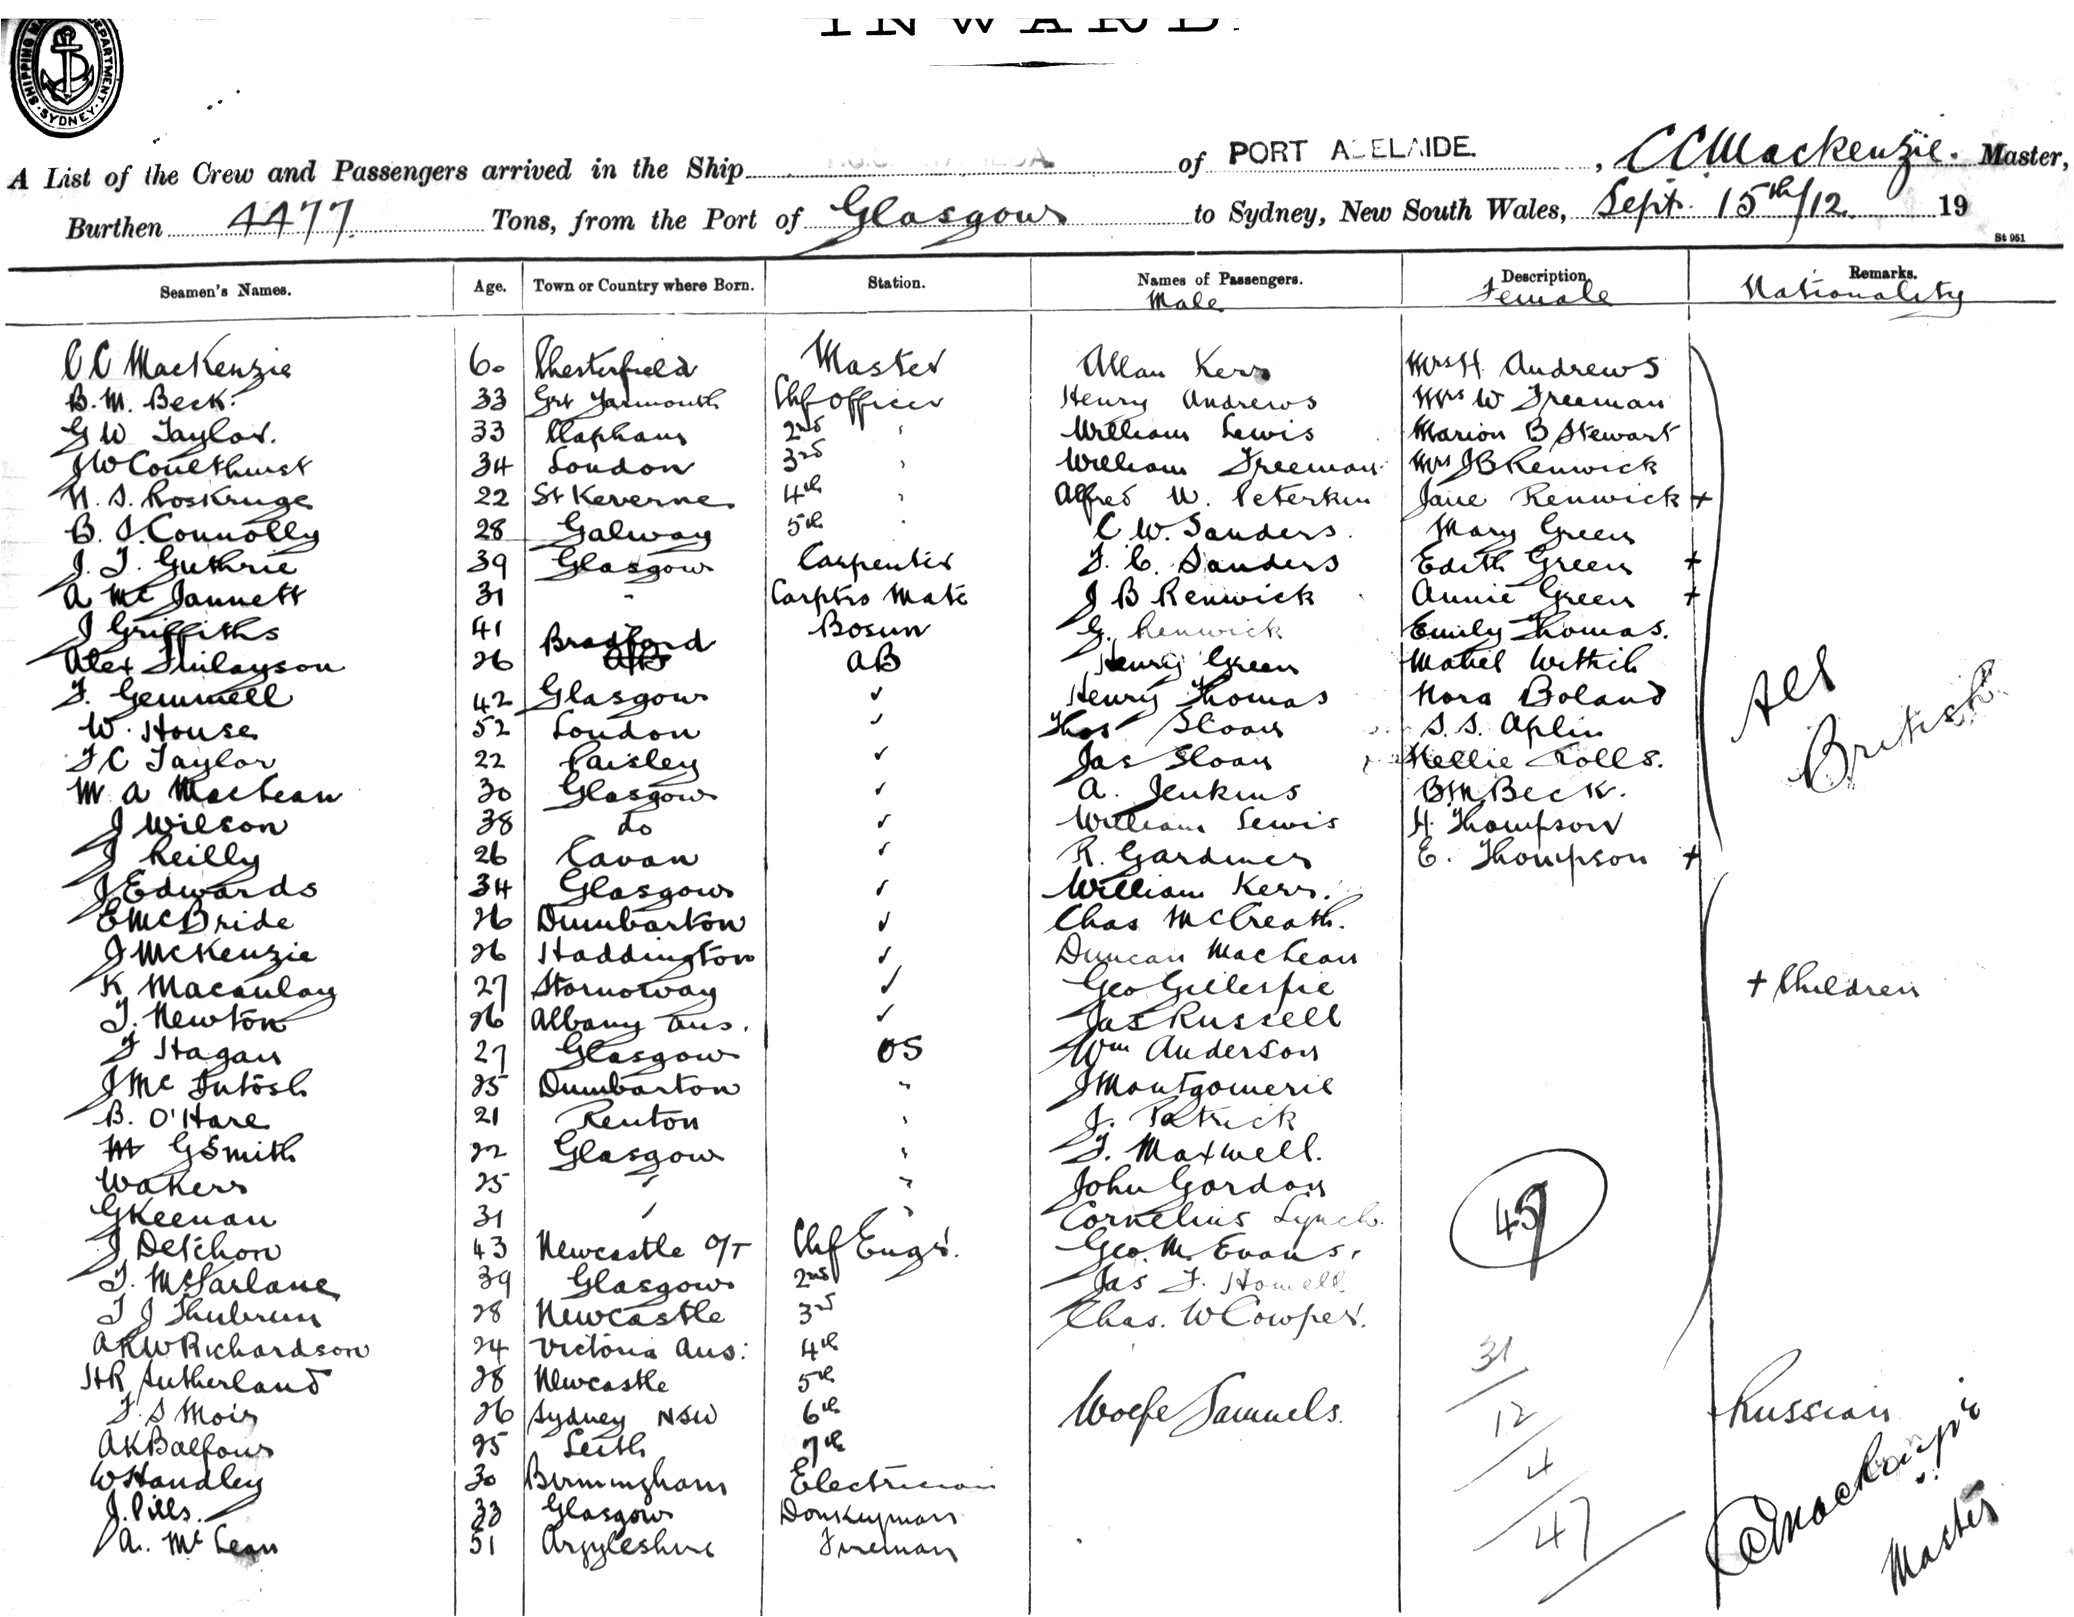 INWARD.
SHIPPING DEPARTMENT SYDNEY
A List of the Crew and Passengers arrived in the Ship of PORT ADELAIDE, CC Mackenzie. Master,
Burthen 4477. Tons, from the Port of Glasgow to Sydney, New South Wales, Sept. 15th/12. 19
St 951
Seamen's Names. Age. Town or Country where Born. Station. Names of Passengers. Description Remarks.
Male Female Nationality
C C MacKenzie 60 Chesterfield Master Allan Kerr Mrs H. Andrews
B. M. Beck. 33 Grt Yarmouth Chf Officer Henry Andrews Mrs W Freeman
G W Taylor. 33 Clapham 2nd " William Lewis Marion B Stewart
J W Coulthurst 34 London 3rd " William Freeman Mrs J B Renwick
N. S. Roskruge 22 St Keverne 4th " Alfred W. Peterkin Jane Renwick +
B. J. Connolly 28 Galway 5th " C. W. Sanders. Mary Green
J. T. Guthrie 39 Glasgow Carpenter F. C. Sanders Edith Green +
A Mc Jannett 31 " Carptrs Mate J B Renwick Annie Green +
J Griffiths 41 Bradford Bosun G. Renwick Emily Thomas.
Alex Finlayson 26 AB Henry Green Mabel Wittich
F. Gemmell 42 Glasgow ✓ Henry Thomas Nora Boland
W. House 52 London ✓ Thos Sloan S. S. Aplin
F C Taylor 22 Paisley ✓ Jas Sloan Nellie Rolls.
M A MacLean 30 Glasgow ✓ A. Jenkins B M Beck.
J Wilson 38 do ✓ William Lewis H. Thompson
J Reilly 26 Cavan ✓ R. Gardiner E. Thompson +
All British
J Edwards 34 Glasgow ✓ William Kerr.
E McBride 26 Dumbarton ✓ Chas McCreath.
J McKenzie 26 Haddington ✓ Duncan MacLean
K. Macaulay 27 Stornoway ✓ Geo Gillespie + Children
T. Newton 26 Albany Aus. ✓ Jas Russell
F Hagan 27 Glasgow OS Wm Anderson
J Mc Intosh 25 Dumbarton " J Montgomerie
B. O'Hare 21 Renton " J. Patrick
G Smith 22 Glasgow " T. Maxwell.
W Akers 25 " " John Gordon
G Keenan 31 " " Cornelius Lynch.
J. Delchon 43 Newcastle O/T Chf Engr. Geo. M. Evans.
T. McFarlane 39 Glasgow 2nd Jas F. Howell
T J Thubrun 28 Newcastle 3rd Chas. W Cowper.
A R W Richardson 24 Victoria Aus: 4th 31
H R Sutherland 28 Newcastle 5th
F. S Moir 26 Sydney NSW 6th Woelfe Samuels. 12 Russian
A K Balfour 25 Leith 7th
W Handley 30 Birmingham Electrician 4
J. Pills. 33 Glasgow Donkeyman
A. Mc Lean 51 Argyleshire Fireman 47
CC Mackenzie
Master